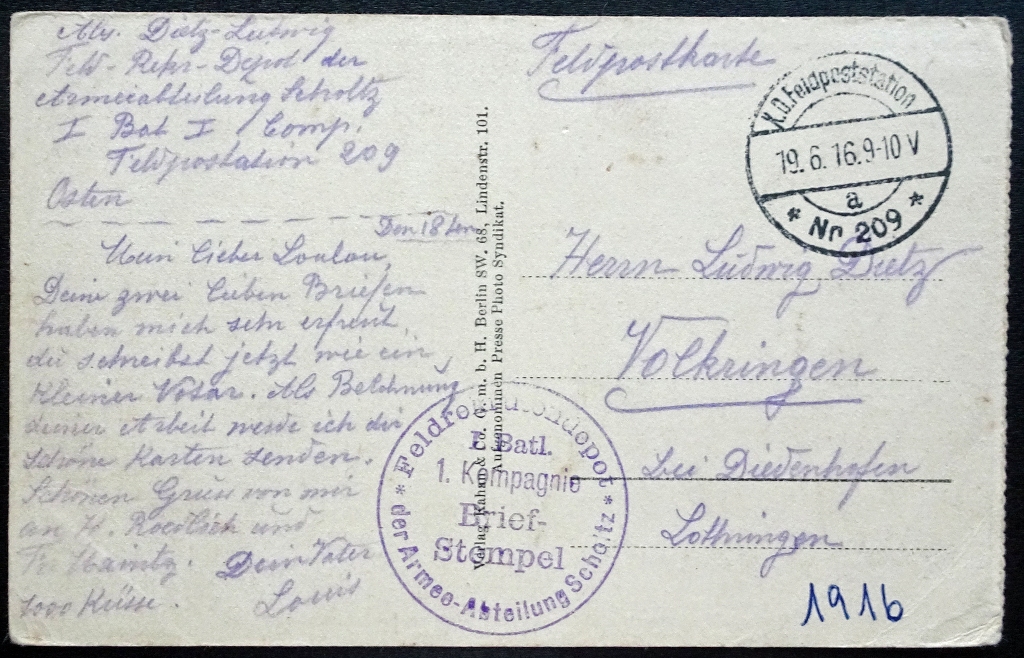 Abs. Dietz-Ludwig
Feld-Rekr-Depot der
Armeeabteilung Scholtz
I Bat I Comp.
Feldpostation 209
Osten
Den 18ten
Mein lieber Loulou,
Deine zwei lieben Briefen
haben mich sehr erfreut,
du schreibst jetzt wie ein
kleiner Notar. Als Belehnung
deiner Arbeit werde ich dir
schöne Karten senden.
Schönen Gruss von mir
an H. und
Fr.
Dein Vater
1000 Küsse. Louis
Verlag Kahan & Co. G. m. b. H. Berlin SW. 68, Lindenstr. 101.
Aufgenommen Presse Photo Syndikat.
Feldpostkarte
K.D.Feldpoststation
19.6.16.9-10 V
a
* Nr 209 *
Herrn Ludwig Dietz
Volkringen
bei Diedenhofen
Lothringen
* Feldrekrutendepot *
I. Batl.
1. Kompagnie
Brief-
Stempel
der Armee-Abteilung Scholtz
1916